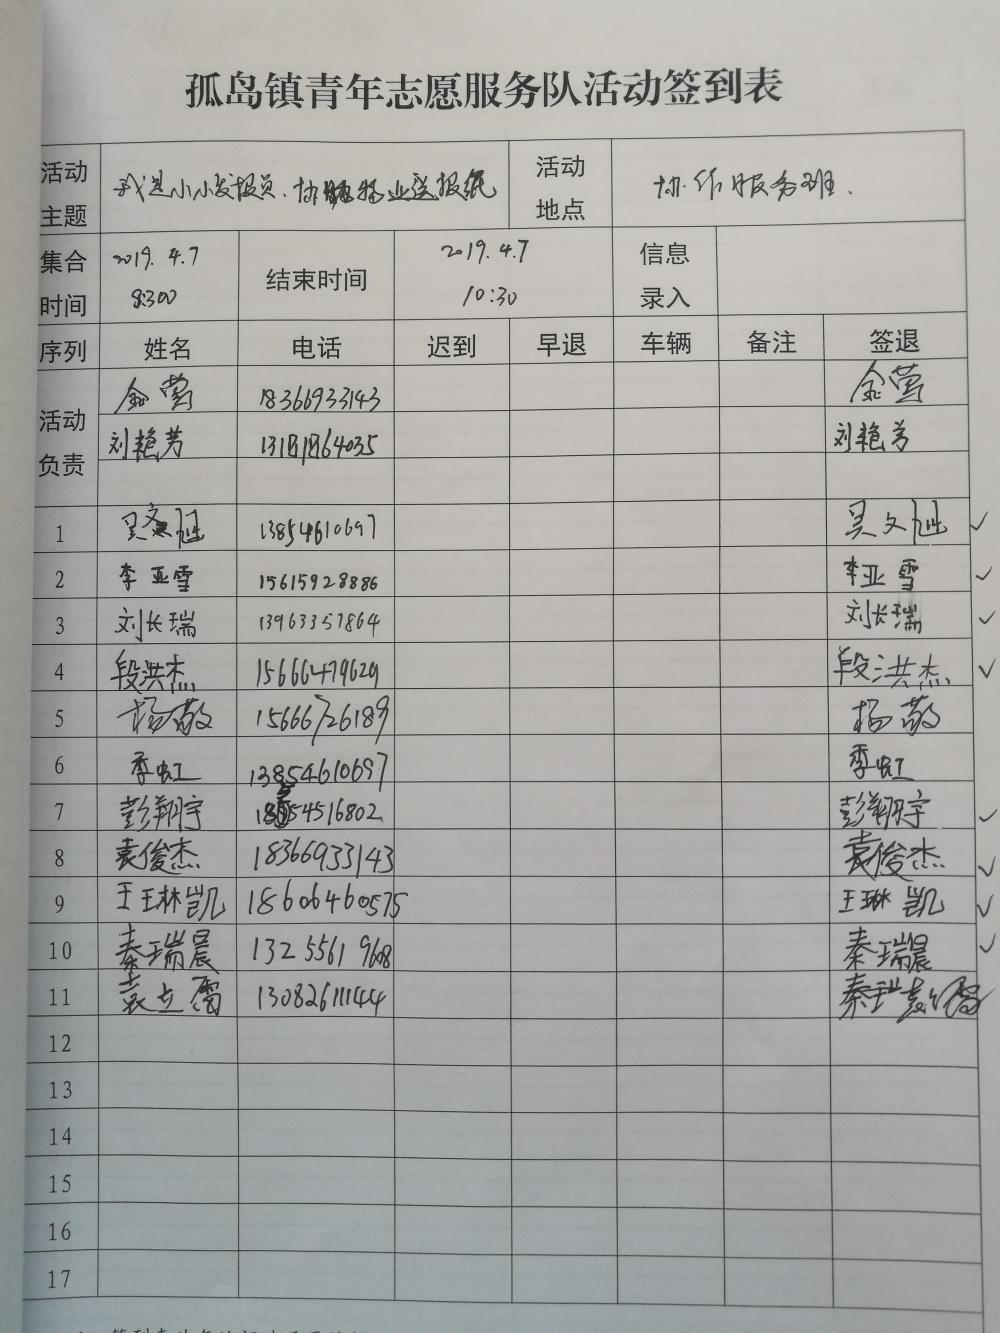 孤岛镇青年志愿服务队活动签到表
活动主题 我是小小发报员、协助物业送报纸 活动地点 协作服务班.
集合时间 2019.4.7 8:300 结束时间 2019.4.7 10:30 信息录入
序列 姓名 电话 迟到 早退 车辆 备注 签退
活动负责 金莺 18366933143 金莺
刘艳芳 刘艳芳
1 吴文 13854610697 吴文
2 李亚雪 15615928886 李亚雪
3 刘长瑞 13963357864 刘长瑞
4 段洪杰 15666479629 段洪杰
5 杨敬 15666726189 杨敬
6 季虹 13854610697 季虹
7 彭翔宇 彭翔宇
8 袁俊杰 18366933143 袁俊杰
9 王琳凯 18606460575 王琳凯
10 秦瑞晨 13255619608 秦瑞晨
11 袁立 13082611144 秦
12
13
14
15
16
17